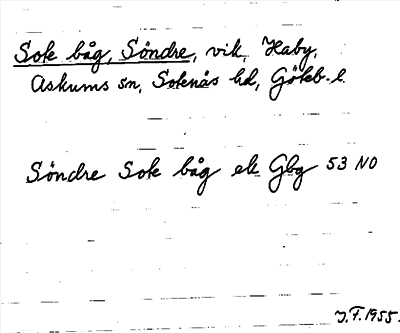 Sok båg, Söndre, vik, Haby,
Askums sn, Sotenäs hd, Göteb. l.
Söndre Sok båg ek Gbg 53 NO
J.F. 1955.